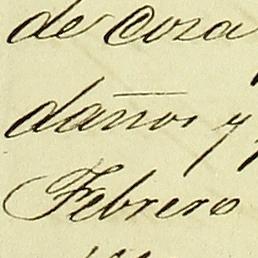 de Cosa
daños y
Febrero